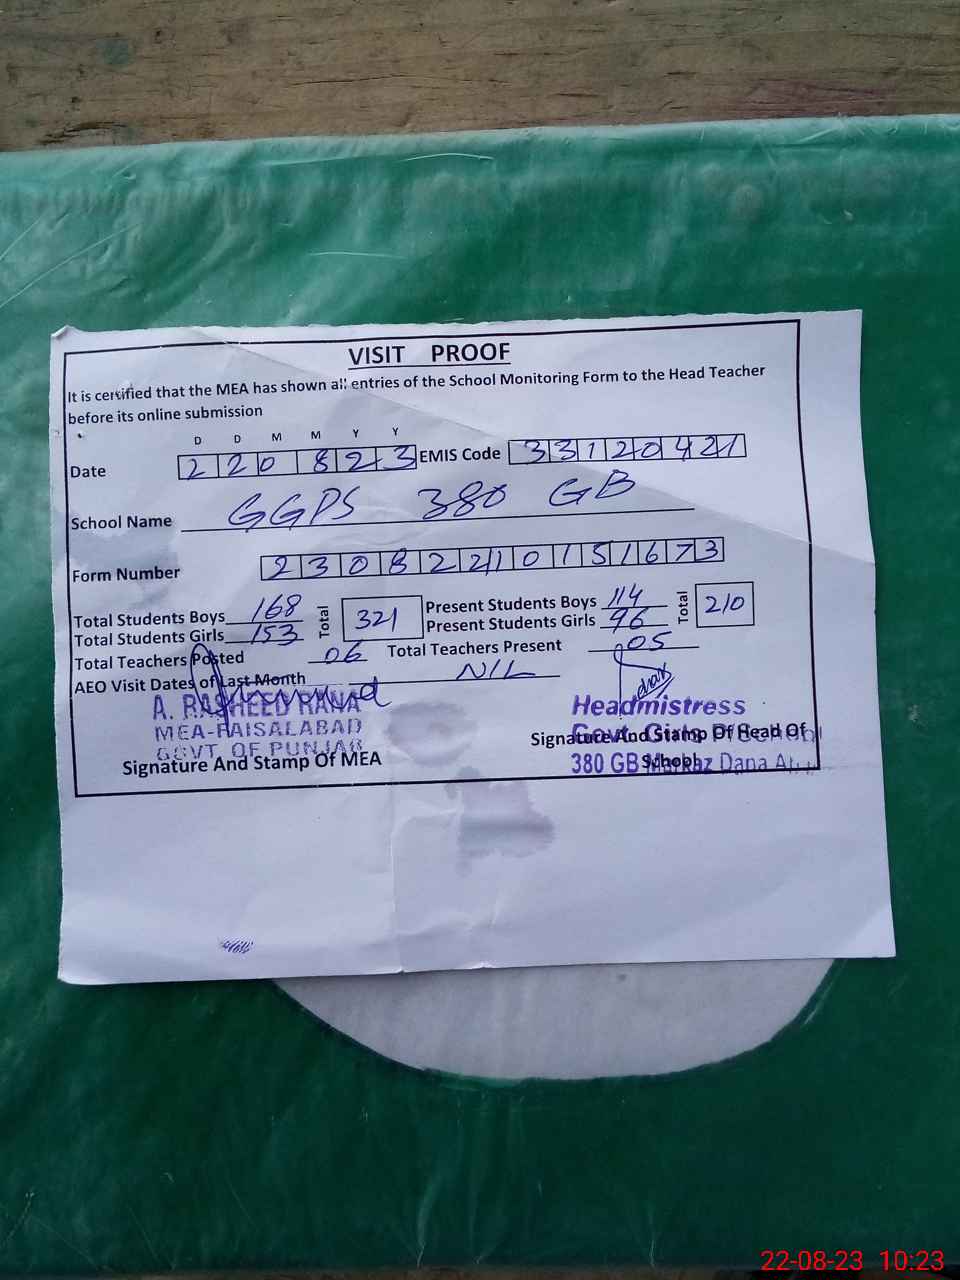 VISIT PROOF
It is certified that the MEA has shown all entries of the School Monitoring Form to the Head Teacher
before its online submission
D D M M Y Y
Date 220823 EMIS Code 33120421
School Name GGPS 380 GB
Form Number 23082210151673
Total Students Boys 168 Total 321 Present Students Boys 114 Total 210
Total Students Girls 153 Present Students Girls 96
Total Teachers Posted 06 Total Teachers Present 05
AEO Visit Dates of Last Month NIL
A. RASHEED RANA
MEA-FAISALABAD
GOVT. OF PUNJAB
Signature And Stamp Of MEA
Headmistress
Govt. Girls P/School
380 GB Markaz Dana
Signature And Stamp Of Head Of
School
22-08-23 10:23